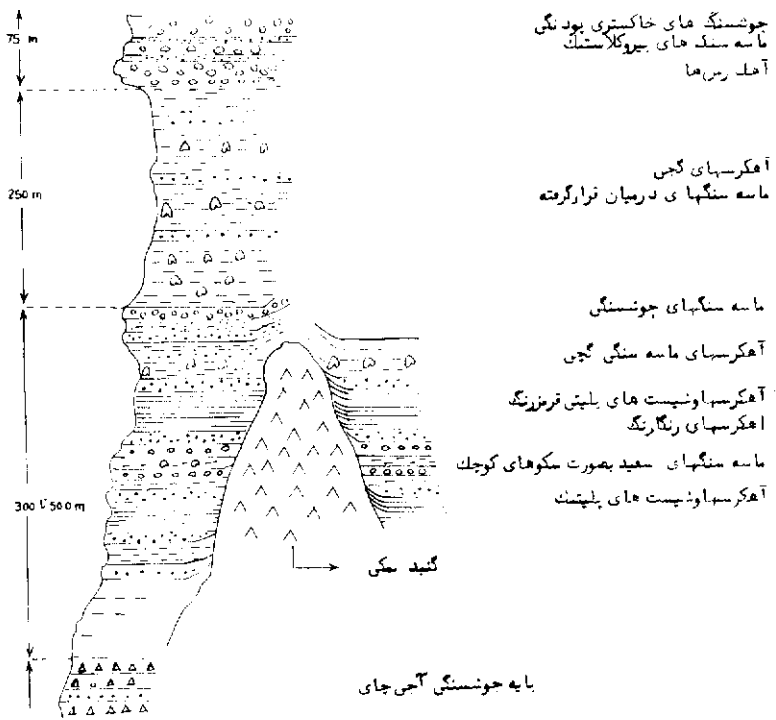 75 m
جوشسنگ های خاکستری پودنگی
ماسه سنگ های پیروکلاستیک
آهک رس‌ها
250 m
آهکرسهای گچی
ماسه سنگهای درمیان قرارگرفته
ماسه سنگهای جوشسنگی
آهکرسهای ماسه سنگی گچی
آهکرسهاوشیست های پلیتی قرمزرنگ
اهکرسهای رنگارنگ
ماسه سنگهای سفید بصورت سکوهای کوچک
300 تا 500 m
آهکرسهاوشیست های پلیتیک
گنبد نمکی
پایه جوشسنگی آجی چای